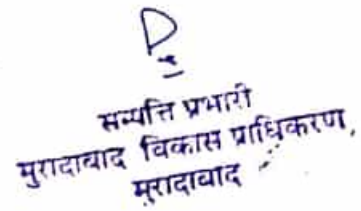 सम्पत्ति प्रभारी
मुरादाबाद विकास प्राधिकरण,
मुरादाबाद